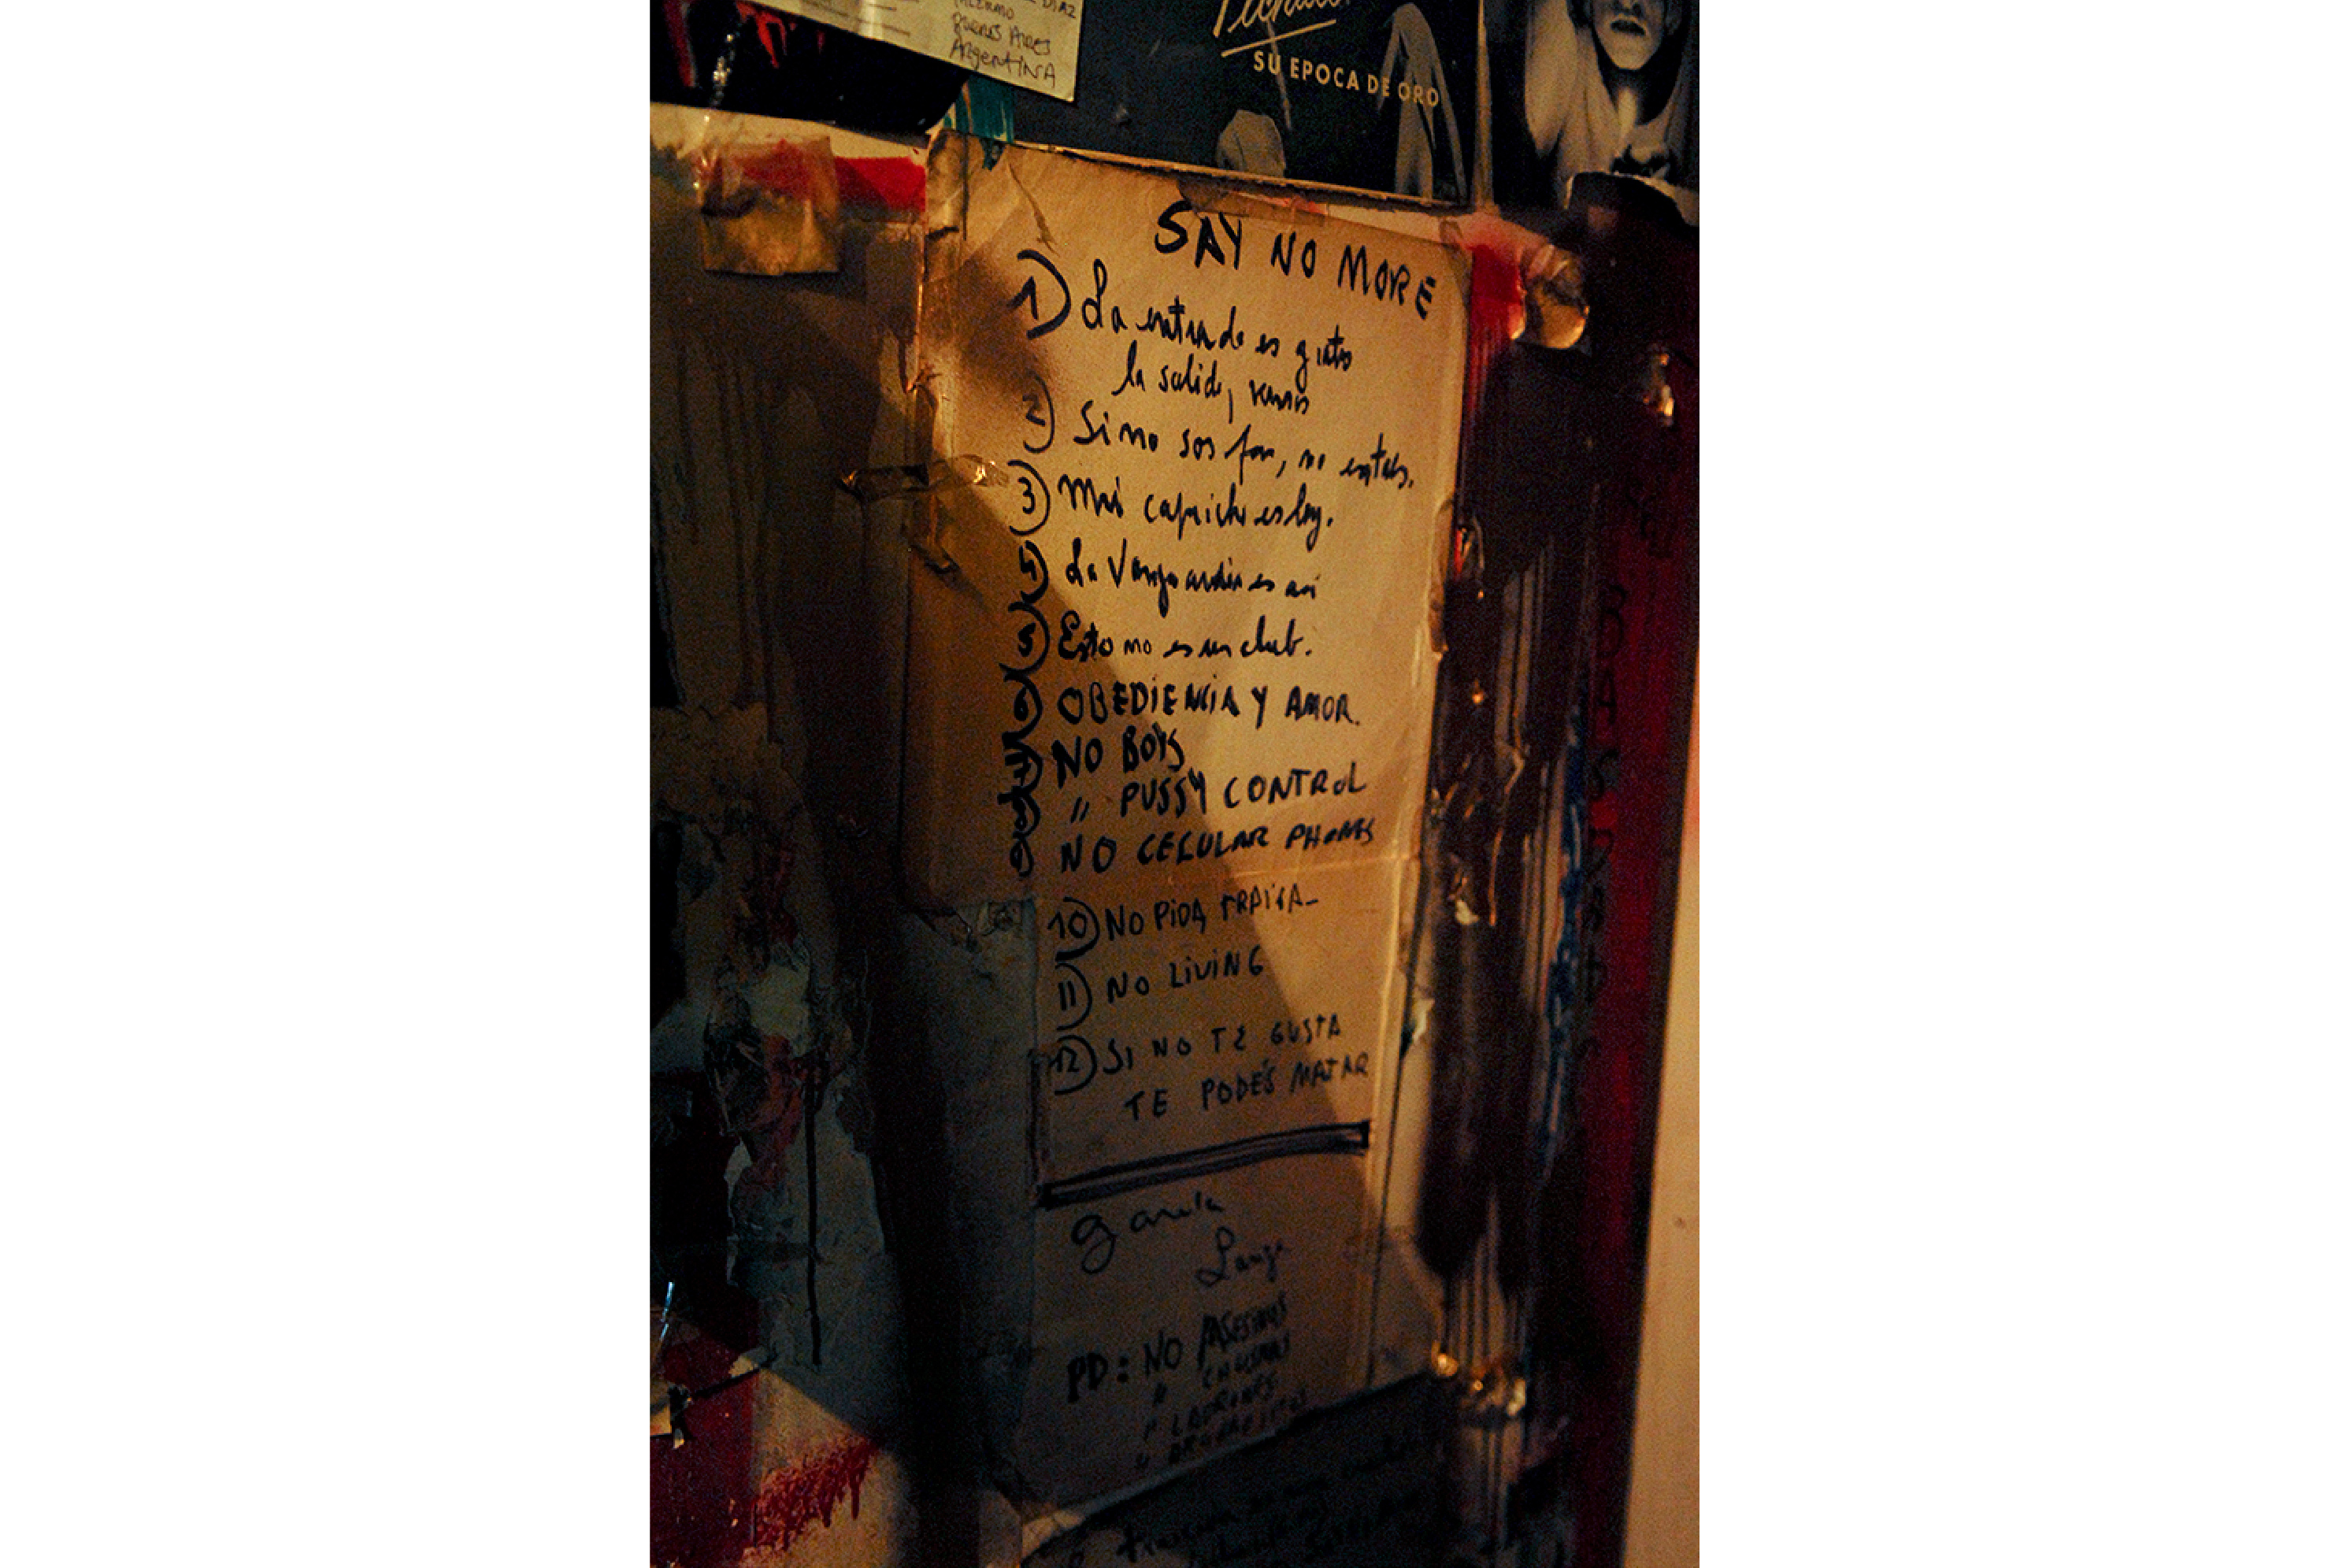 PALERMO
Buenos Aires
ArgentinA
SU EPOCA DE ORO
SAY NO MORE
1) La entrada es gratis
la salida, vemos
2) Si no sos fan, no entrás.
3) Mi capricho es ley.
La Vanguardia es así
Esto no es un club.
6) OBEDIENCIA Y AMOR.
NO BOYS
" PUSSY CONTROL
NO CELULAR PHONES
10) NO PIDA, TRAIGA-
11) NO LIVING
12) SI NO TE GUSTA
TE PODÉS MATAR
PD: NO ASESINOS
"
" LADRONES
"